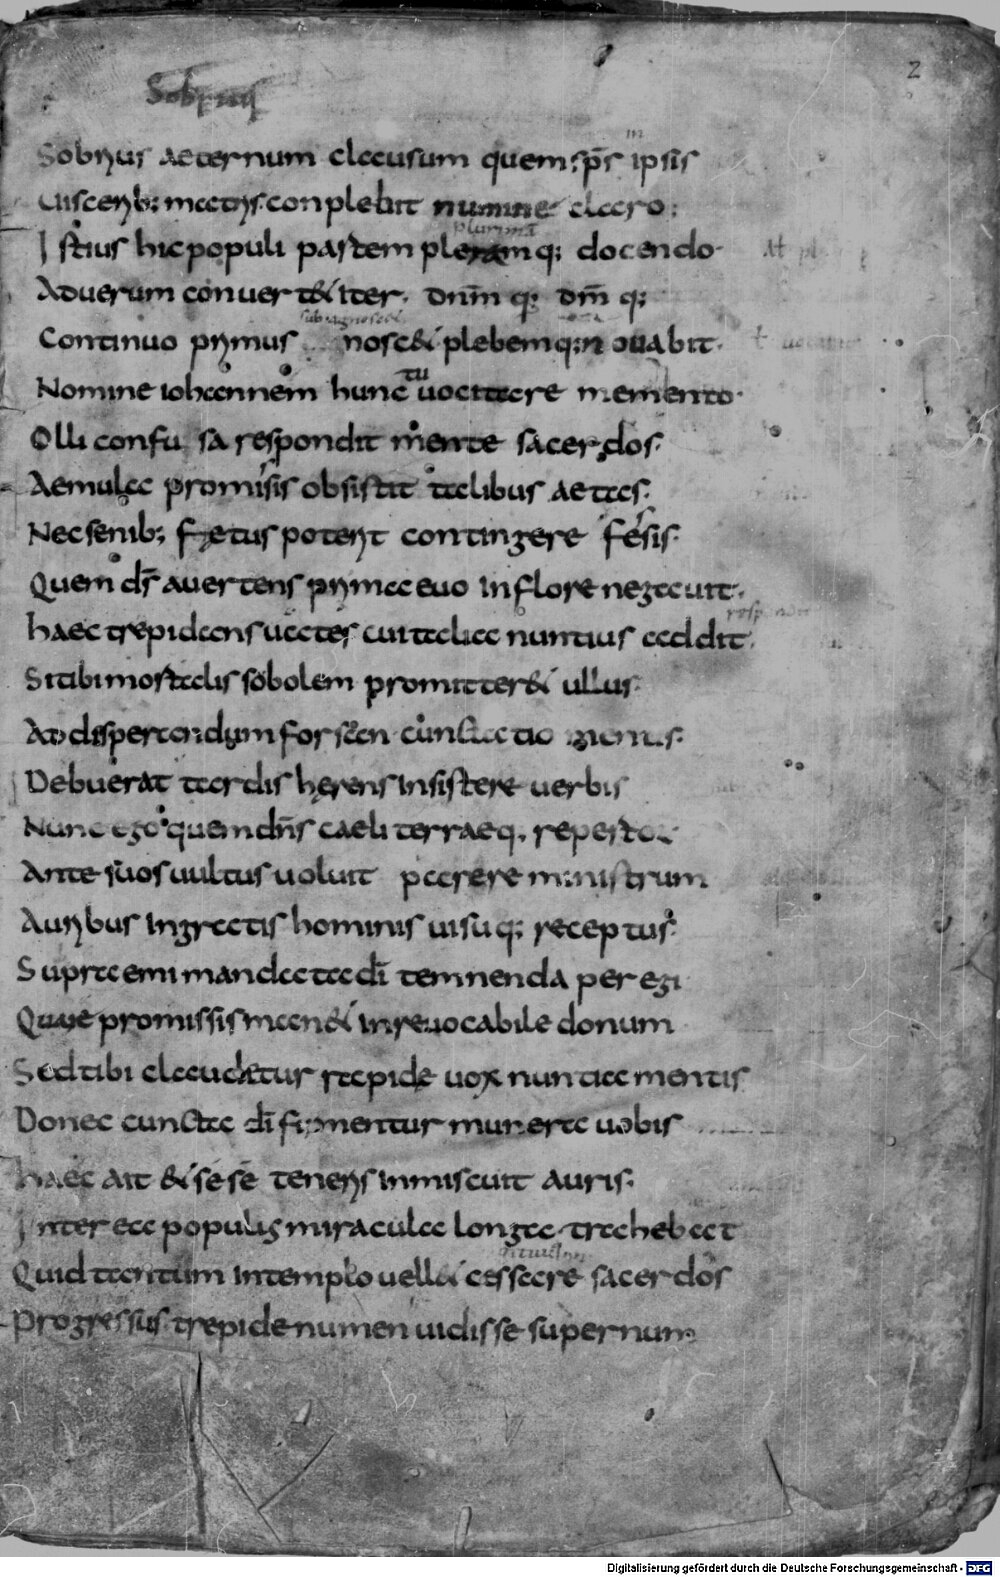 2
Sobrius
Sobrius aeternum clausum quem sps in ipsis
Uiscerib; matris conplebit numine claro;
Istius hic populi partem plurima pleramq; docendo
Ad uerum conuert& iter, dnm q; dm q;
Continuo primus nosc& plebemq; nouabit
Nomine iohannem hunc tu uocitare memento
Olli confusa respondit mente sacerdos
Aemula promissis obsistit talibus aetas
Nec senib; fetus poterit contingere fessis
Quem ds auertens primaeuo in flore negauit
haec trepidans uates cui talia nuntius addit
Si tibi mortalis sobolem promitter& ullus
Ad disperdendum forsan cuncta
Debuerat tardis herens insistere uerbis
Nunc ego quem dns caeli terraeq; repertor
Ante suos uultus uoluit parere ministrum
Auribus ingratis hominis uisuq; receptus
Supraemi mandata di temnenda peregi
Quare promissis man& inreuocabile donum
Sed tibi claudetur rapide uox nuntia mentis
Donec cuncta di firmentur munera uobis
haec ait & sese teneris inmiscuit auris
Interea populus miracula longa trahebat
Quid tantum in templo uell& cessare sacerdos
Progressus trepide numen uidisse supernum
Digitalisierung gefördert durch die Deutsche Forschungsgemeinschaft - DFG